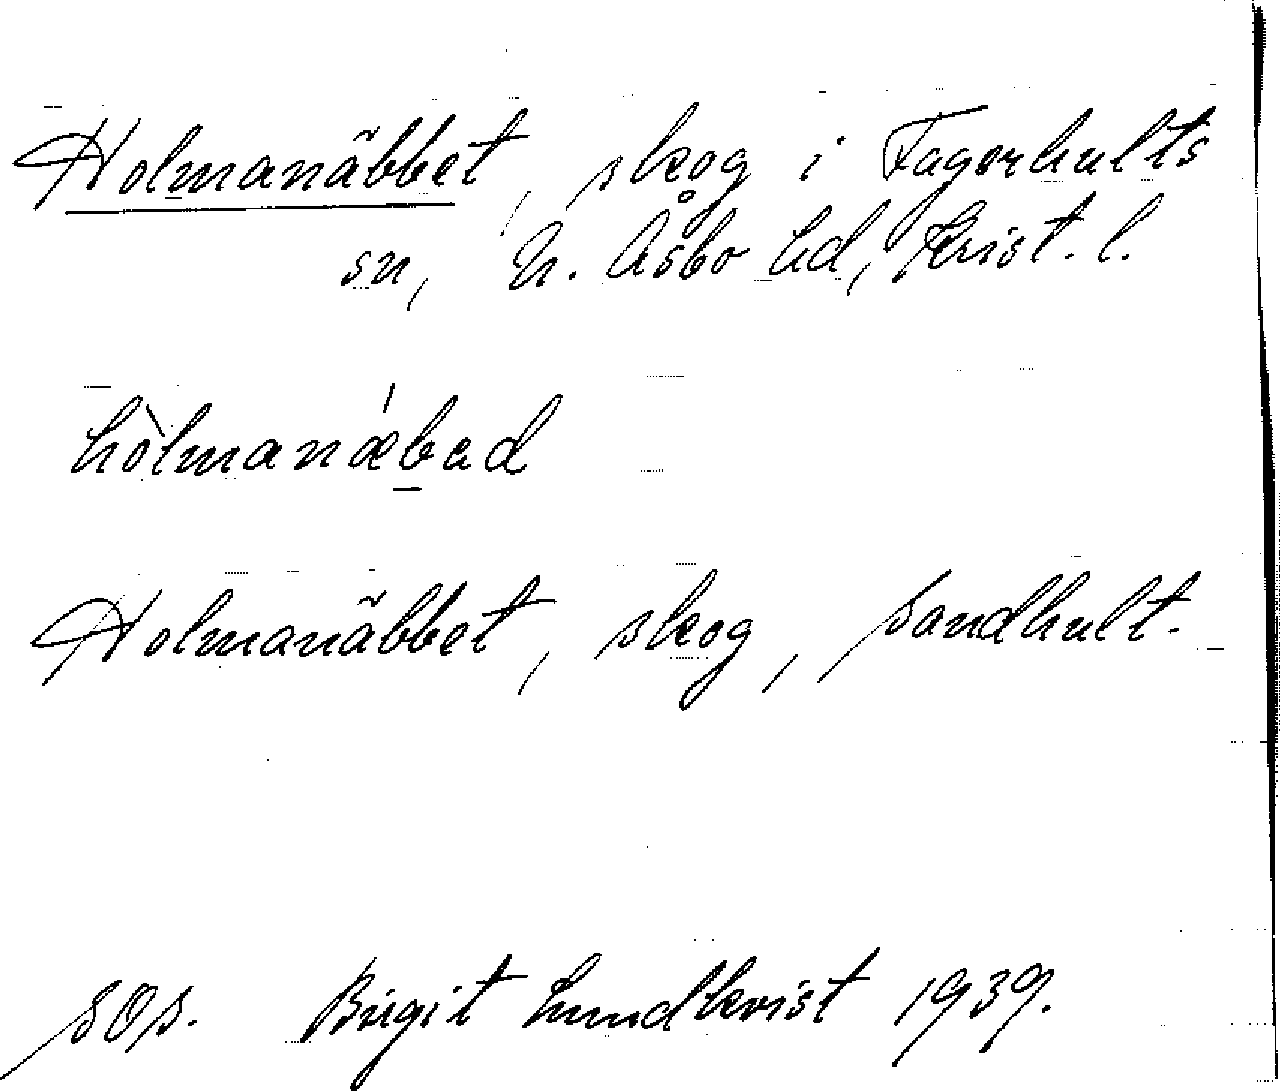 Holmanäbbet, skog i Fagerhults
sn, N. Åsbo hd, Krist. l.
hòlmanǽbad
Holmanäbbet, skog, Sandhult.
SOS. Birgit Lundkvist 1939.